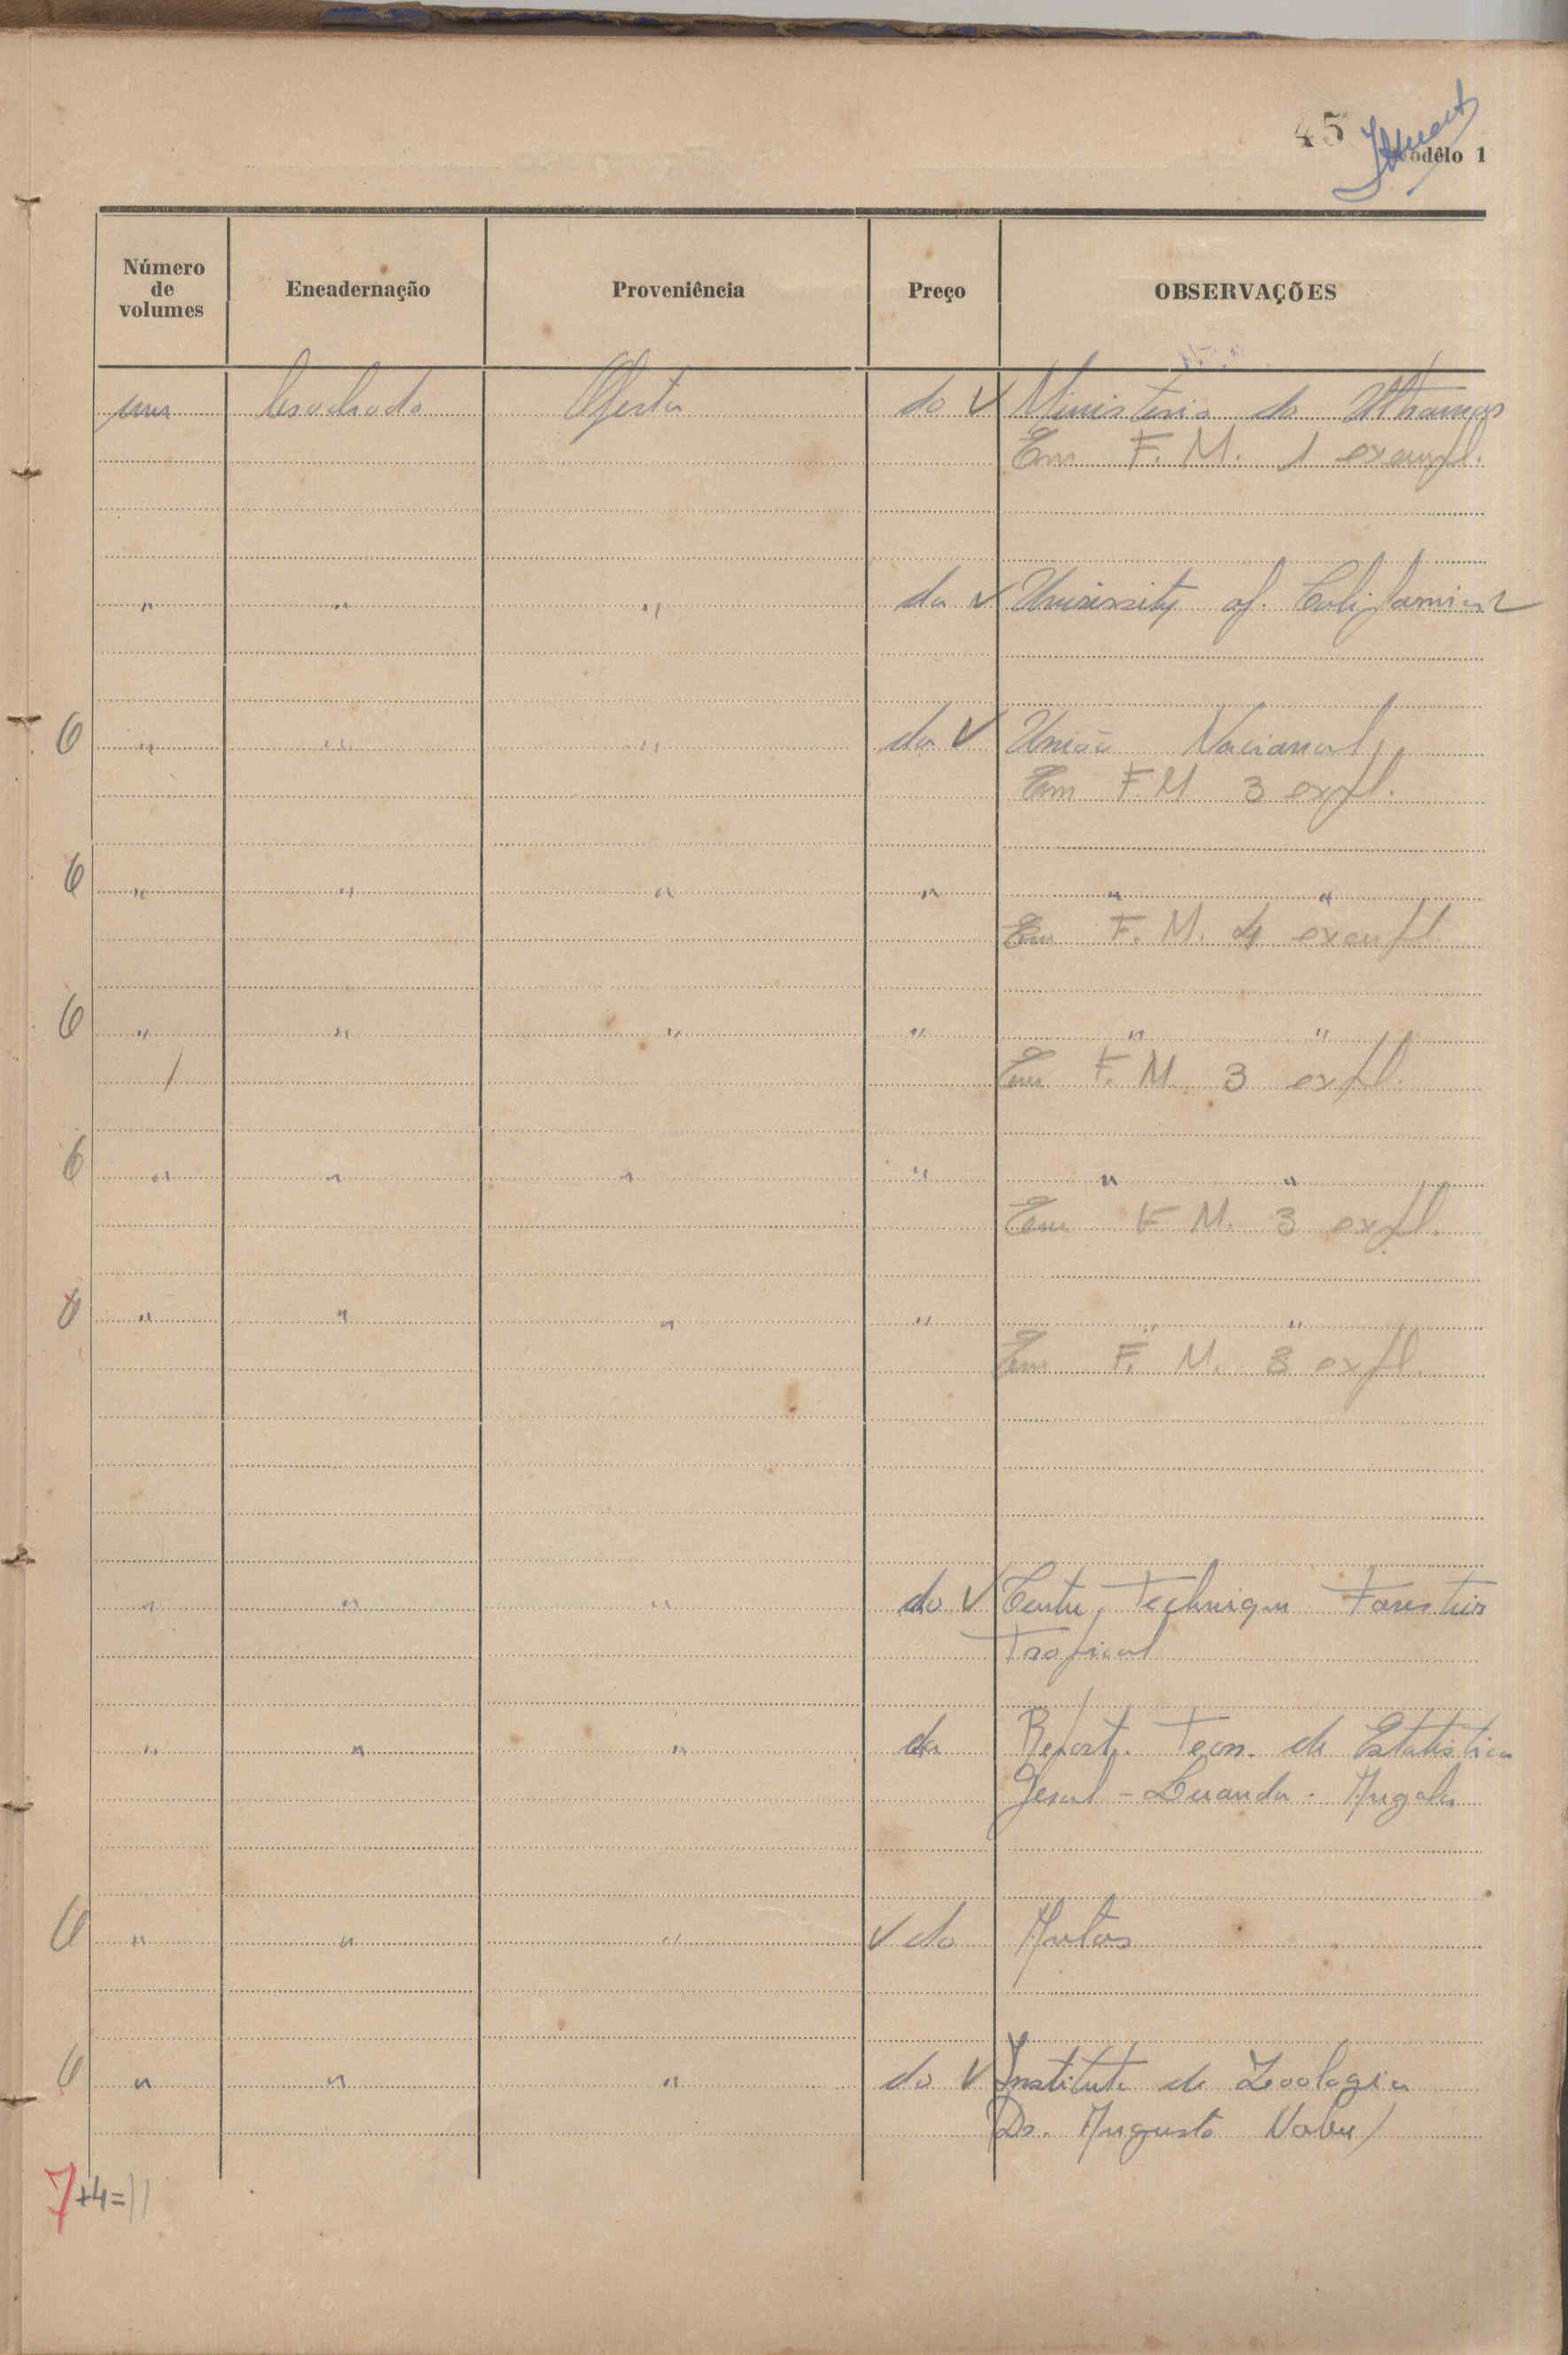 45
Modêlo 1
Número de volumes Encadernação Proveniência Preço OBSERVAÇÕES
um brochado Oferta do √ Ministério do Ultramar
Em F. M. 1 exempl.
" " " da √ University of. California
6 " " " da √ União Nacional
Em F.M 3 expl.
6 " " " " " "
Em F. M. 4 exempl
6 " " " " " "
/ Em F. M. 3 expl.
6 " " " " " "
Em F M. 3 expl.
6 " " " " " "
Em F. M. 3 expl.
" " " do √ Centre Technique Forestier
Tropical
" " " da Repart. Tecn. de Estatistica
Geral - Luanda. Angola
6 " " " √ do Autor
6 " " " do √ Instituto de Zoologia
Dr. Augusto Nobre
7+4=11